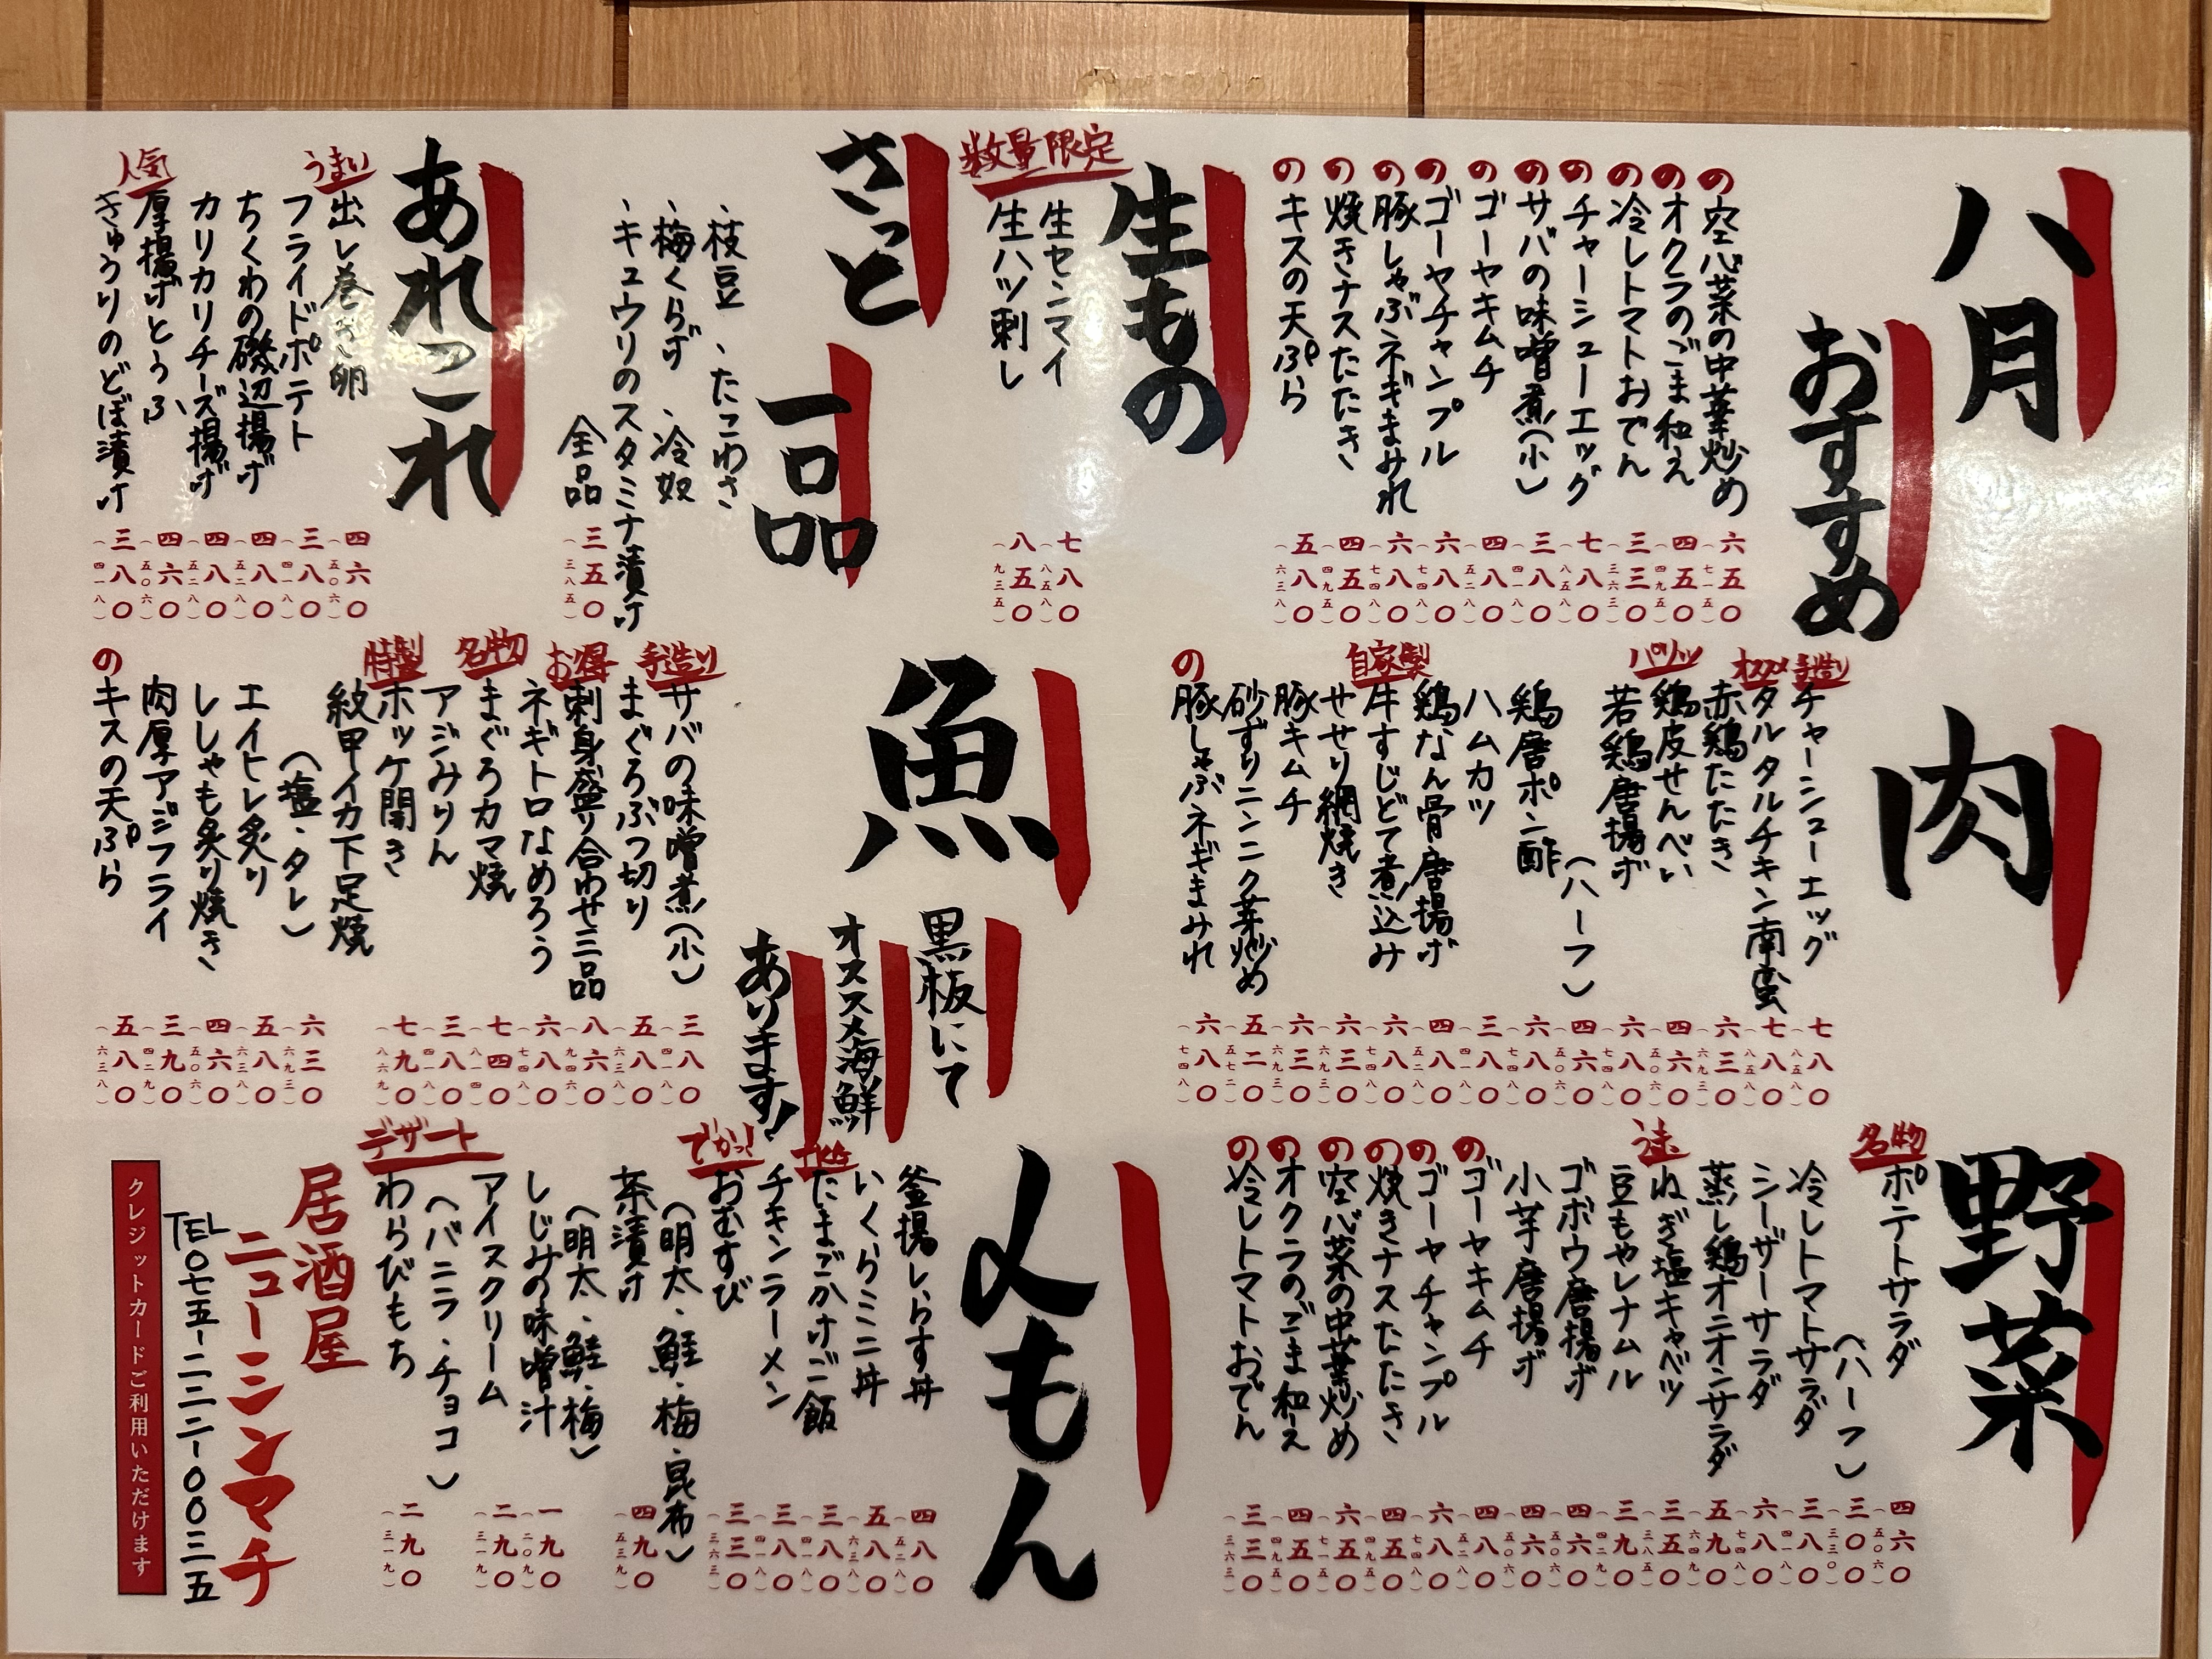 八月
おすすめ
の空心菜の中華炒め 六五〇(七一五)
のオクラのごま和え 四五〇(四九五)
の冷しトマトおでん 三三〇(三六三)
のチャーシューエッグ 七八〇(八五八)
のサバの味噌煮(小) 三八〇(四一八)
のゴーヤキムチ 四八〇(五二八)
のゴーヤチャンプル 六八〇(七四八)
の豚しゃぶネギまみれ 六八〇(七四八)
の焼きナスたたき 四五〇(四九五)
のキスの天ぷら 五八〇(六三八)
生もの
数量限定
生センマイ 七八〇(八五八)
生ハツ刺し 八五〇(九三五)
さっと
一品
、枝豆 、たこわさ
、梅くらげ 、冷奴
、キュウリのスタミナ漬け
全品 三五〇(三八五)
あれこれ
うまい 出し巻き卵 四六〇(五〇六)
フライドポテト 三八〇(四一八)
ちくわの磯辺揚げ 四八〇(五二八)
カリカリチーズ揚げ 四八〇(五二八)
人気 厚揚げとうふ 四六〇(五〇六)
きゅうりのどぼ漬け 三八〇(四一八)
肉
手造り チャーシューエッグ 七八〇(八五八)
オススメ タルタルチキン南蛮 七八〇(八五八)
赤鶏たたき 六三〇(六九三)
パリッ 鶏皮せんべい 四六〇(五〇六)
若鶏唐揚げ 六八〇(七四八)
(ハーフ) 四六〇(五〇六)
鶏唐ポン酢 六八〇(七四八)
ハムカツ 三八〇(四一八)
鶏なん骨唐揚げ 四八〇(五二八)
自家製 牛すじどて煮込み 六八〇(七四八)
せせり網焼き 六三〇(六九三)
豚キムチ 六三〇(六九三)
砂ずりニンニク芽炒め 五二〇(五七二)
の豚しゃぶネギまみれ 六八〇(七四八)
魚
黒板にて
オススメ海鮮
あります!
手造り サバの味噌煮(小) 三八〇(四一八)
まぐろぶつ切り 五八〇(六三八)
お得 刺身盛り合わせ三品 八六〇(九四六)
ネギトロなめろう 六八〇(七四八)
名物 まぐろカマ焼 七四〇(八一四)
アジみりん 三八〇(四一八)
特製 ホッケ開き 七九〇(八六九)
紋甲イカ下足焼
(塩・タレ) 六三〇(六九三)
エイヒレ炙り 五八〇(六三八)
ししゃも炙り焼き 四六〇(五〇六)
肉厚アジフライ 三九〇(四二九)
のキスの天ぷら 五八〇(六三八)
野菜
名物 ポテトサラダ 四六〇(五〇六)
(ハーフ) 三〇〇(三三〇)
冷しトマトサラダ 三八〇(四一八)
シーザーサラダ 六八〇(七四八)
蒸し鶏オニオンサラダ 五九〇(六四九)
ねぎ塩キャベツ 三五〇(三八五)
豆もやしナムル 三九〇(四二九)
ゴボウ唐揚げ 四六〇(五〇六)
小芋唐揚げ 四六〇(五〇六)
のゴーヤキムチ 四八〇(五二八)
のゴーヤチャンプル 六八〇(七四八)
の焼きナスたたき 四五〇(四九五)
の空心菜の中華炒め 六五〇(七一五)
のオクラのごま和え 四五〇(四九五)
の冷しトマトおでん 三三〇(三六三)
〆もん
釜揚しらす丼 四八〇(五二八)
いくらミニ丼 五八〇(六三八)
たまごかけご飯 三八〇(四一八)
チキンラーメン 三八〇(四一八)
でかっ! おむすび 三三〇(三六三)
(明太・鮭・梅・昆布)
茶漬け 四九〇(五三九)
(明太・鮭・梅)
しじみの味噌汁 一九〇(二〇九)
デザート
アイスクリーム 二九〇(三一九)
(バニラ・チョコ)
わらびもち 二九〇(三一九)
居酒屋
ニューシンマチ
TEL〇七五-二三二-〇〇三五
クレジットカードご利用いただけます